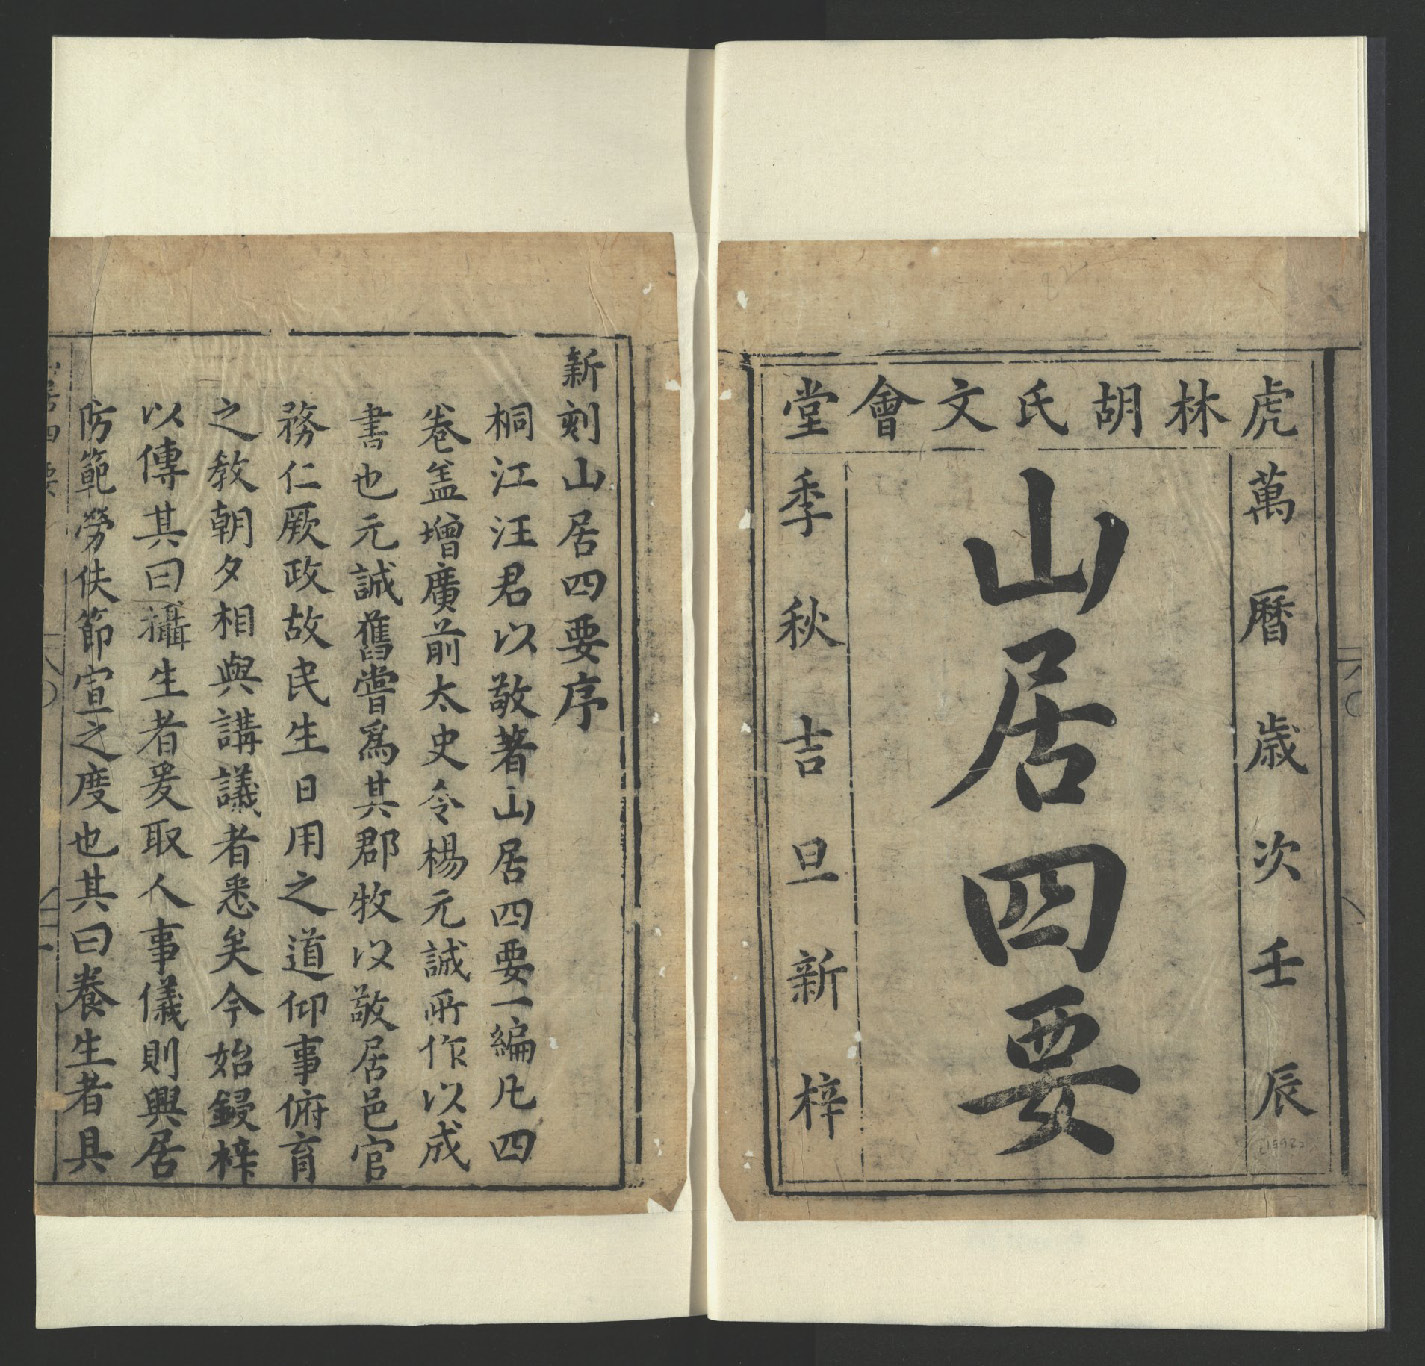 虎林胡氏文會堂
萬曆歲次壬辰
山居四要
季秋吉旦新梓
新刻山居四要序
桐江汪君以敬著山居四要一編凡四
卷盖增廣前太史令楊元誠所作以成
書也元誠舊嘗爲其郡牧以敬居邑官
務仁厥政故民生日用之道仰事俯育
之教朝夕相與講議者悉矣今始鋟梓
以傳其曰攝生者爰取人事儀則興居
防範勞佚節宣之度也其曰養生者具